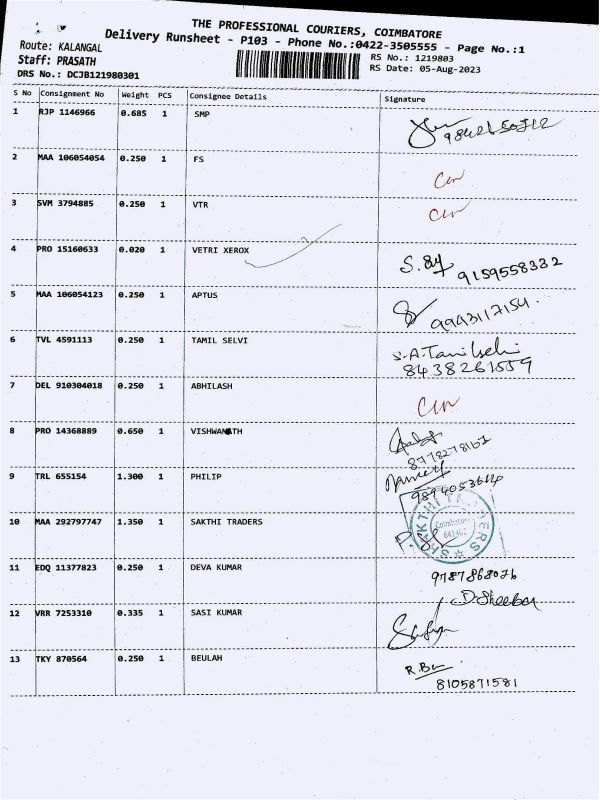 THE PROFESSIONAL COURIERS, COIMBATORE
Delivery Runsheet - P103 - Phone No.:0422-3505555 - Page No.:1
Route: KALANGAL
RS No.: 1219803
Staff: PRASATH
RS Date: 05-Aug-2023
DRS No.: DCJB121980301
S No Consignment No Weight PCS Consignee Details Signature
1 RJP 1146966 0.685 1 SMP
2 MAA 106054054 0.250 1 FS
3 SVM 3794885 0.250 1 VTR
4 PRO 15160633 0.020 1 VETRI XEROX
9159558332
5 MAA 106054123 0.250 1 APTUS
9943117154.
6 TVL 4591113 0.250 1 TAMIL SELVI
S.A.Tamilselvi
8438261559
7 DEL 910304018 0.250 1 ABHILASH
8 PRO 14368889 0.650 1 VISHWANATH
9 TRL 655154 1.300 1 PHILIP
10 MAA 292797747 1.350 1 SAKTHI TRADERS
SHAKTHI TRADERS
Coimbatore
11 EDQ 11377823 0.250 1 DEVA KUMAR
9787868076
D.Sheeba
12 VRR 7253310 0.335 1 SASI KUMAR
13 TKY 870564 0.250 1 BEULAH
8105871581